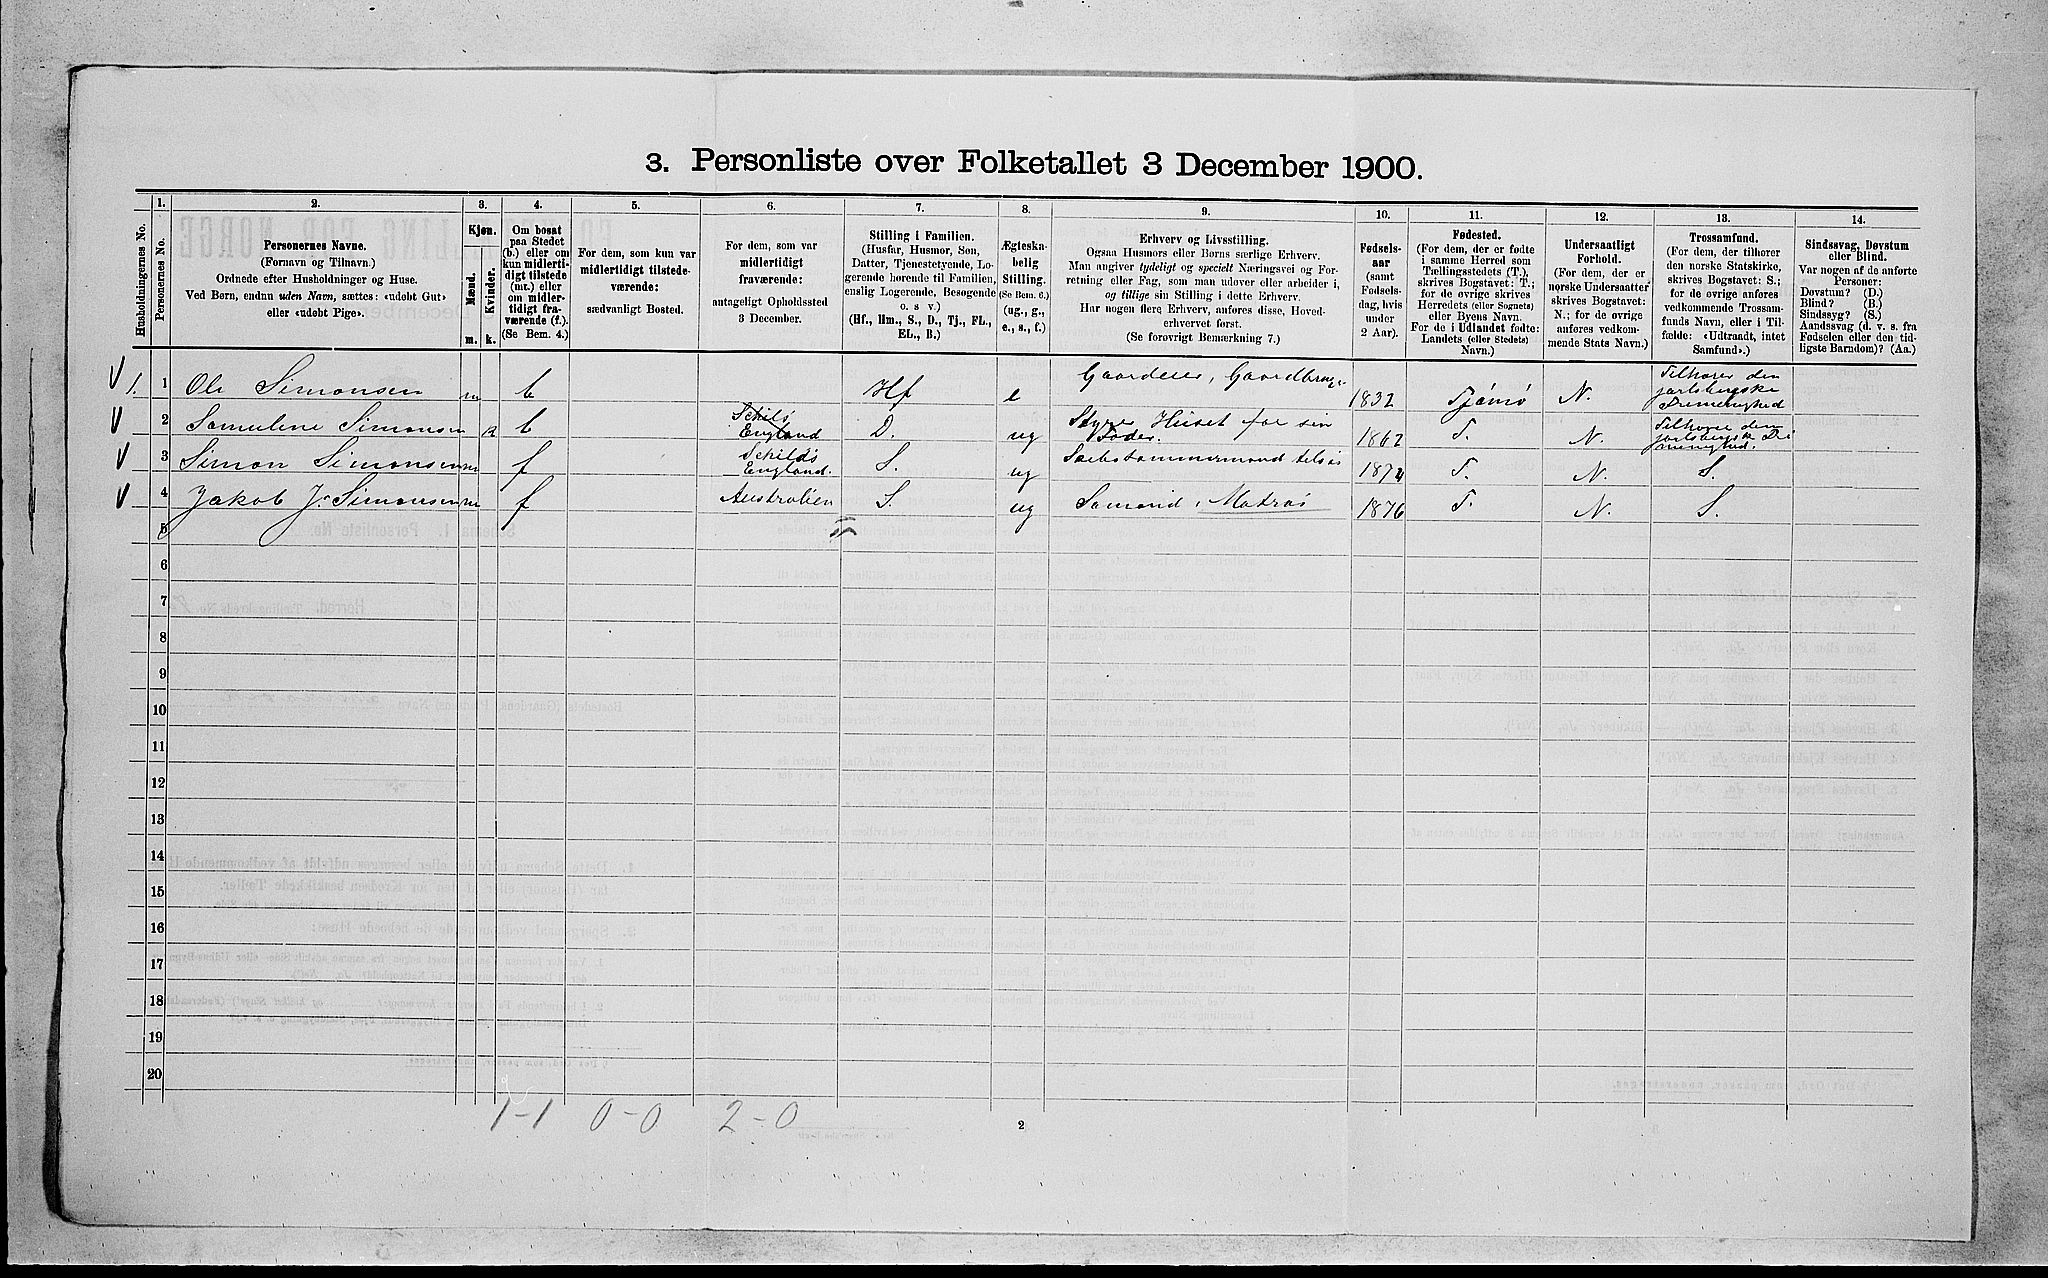 3. Personliste over Folketallet 3 December 1900.
Husholdningernes No.
1.
Personernes No.
2.
Personernes Navne.
(Fornavn og Tilnavn.)
Ordnede efter Husholdninger og Huse.
Ved Børn, endnu uden Navn, sættes: «udøbt Gut»
eller «udøbt Pige».
3.
Kjøn.
Mænd.
Kvinder.
m.
k.
4.
Om bosat
paa Stedet
(b.) eller om
kun midlerti-
digt tilstede
(mt.) eller
om midler-
tidigt fra-
værende (f.).
(Se Bem. 4.)
5.
For dem, som kun var
midlertidigt tilstede-
værende:
sædvanligt Bosted.
6.
For dem, som var
midlertidigt
fraværende:
antageligt Opholdssted
3 December.
7.
Stilling i Familien.
(Husfar, Husmor, Søn,
Datter, Tjenestetyende, Lo-
gerende hørende til Familien,
enslig Logerende, Besøgende
o. s. v.)
(Hf., Hm., S., D., Tj., FL.,
EL., B.)
8.
Ægteska-
belig
Stilling.
(Se Bem. 6.)
(ug., g.,
e., s., f.)
9.
Erhverv og Livsstilling.
Ogsaa Husmors eller Børns særlige Erhverv.
Man angiver tydeligt og specielt Næringsvei og For-
retning eller Fag, som man udøver eller arbeider i,
og tillige sin Stilling i dette Erhverv.
Har nogen flere Erhverv, anføres disse, Hoved-
erhvervet først.
(Se forøvrigt Bemærkning 7.)
10.
Fødsels-
aar
(samt
Fødsels-
dag, hvis
under
2 Aar).
11.
Fødested.
(For dem, der er fødte
i samme Herred som
Tællingsstedets (T.),
skrives Bogstavet: T.;
for de øvrige skrives
Herredets (eller Sognets)
eller Byens Navn.
For de i Udlandet fødte:
Landets (eller Stedets)
Navn.)
12.
Undersaatligt
Forhold.
(For dem, der er
norske Undersaatter
skrives Bogstavet:
N.; for de øvrige
anføres vedkom-
mende Stats Navn.)
13.
Trossamfund.
(For dem, der tilhører
den norske Statskirke,
skrives Bogstavet: S.;
for de øvrige anføres
vedkommende Trossam-
funds Navn, eller i Til-
fælde: «Udtraadt, intet
Samfund».)
14.
Sindssvag, Døvstum
eller Blind.
Var nogen af de anførte
Personer:
Døvstum? (D.)
Blind? (B.)
Sindssyg? (S.)
Aandssvag (d. v. s. fra
Fødselen eller den tid-
ligste Barndom)? (Aa.)
1. 1 Ole Simonsen m b Hf e Gaardeier, Gaardbruger 1832 Tjømø N. Tilhører den jarlsbergske Frimenighed
2 Samuline Simonsen k b England D. ug Styrer Huset for sin Fader. 1862 T. N. Tilhører den jarlsbergske
3 Simon Simonsen m f Schilds England. S. ug tilsøs 187 T. N. S.
4 Jakob J. Simonsen m f Australien S. ug Sømand, Matros 1876 T. N. S.
5
6
7
8
9
10
11
12
13
14
15
16
17
18
19
20
1-1 0-0 2-0
2